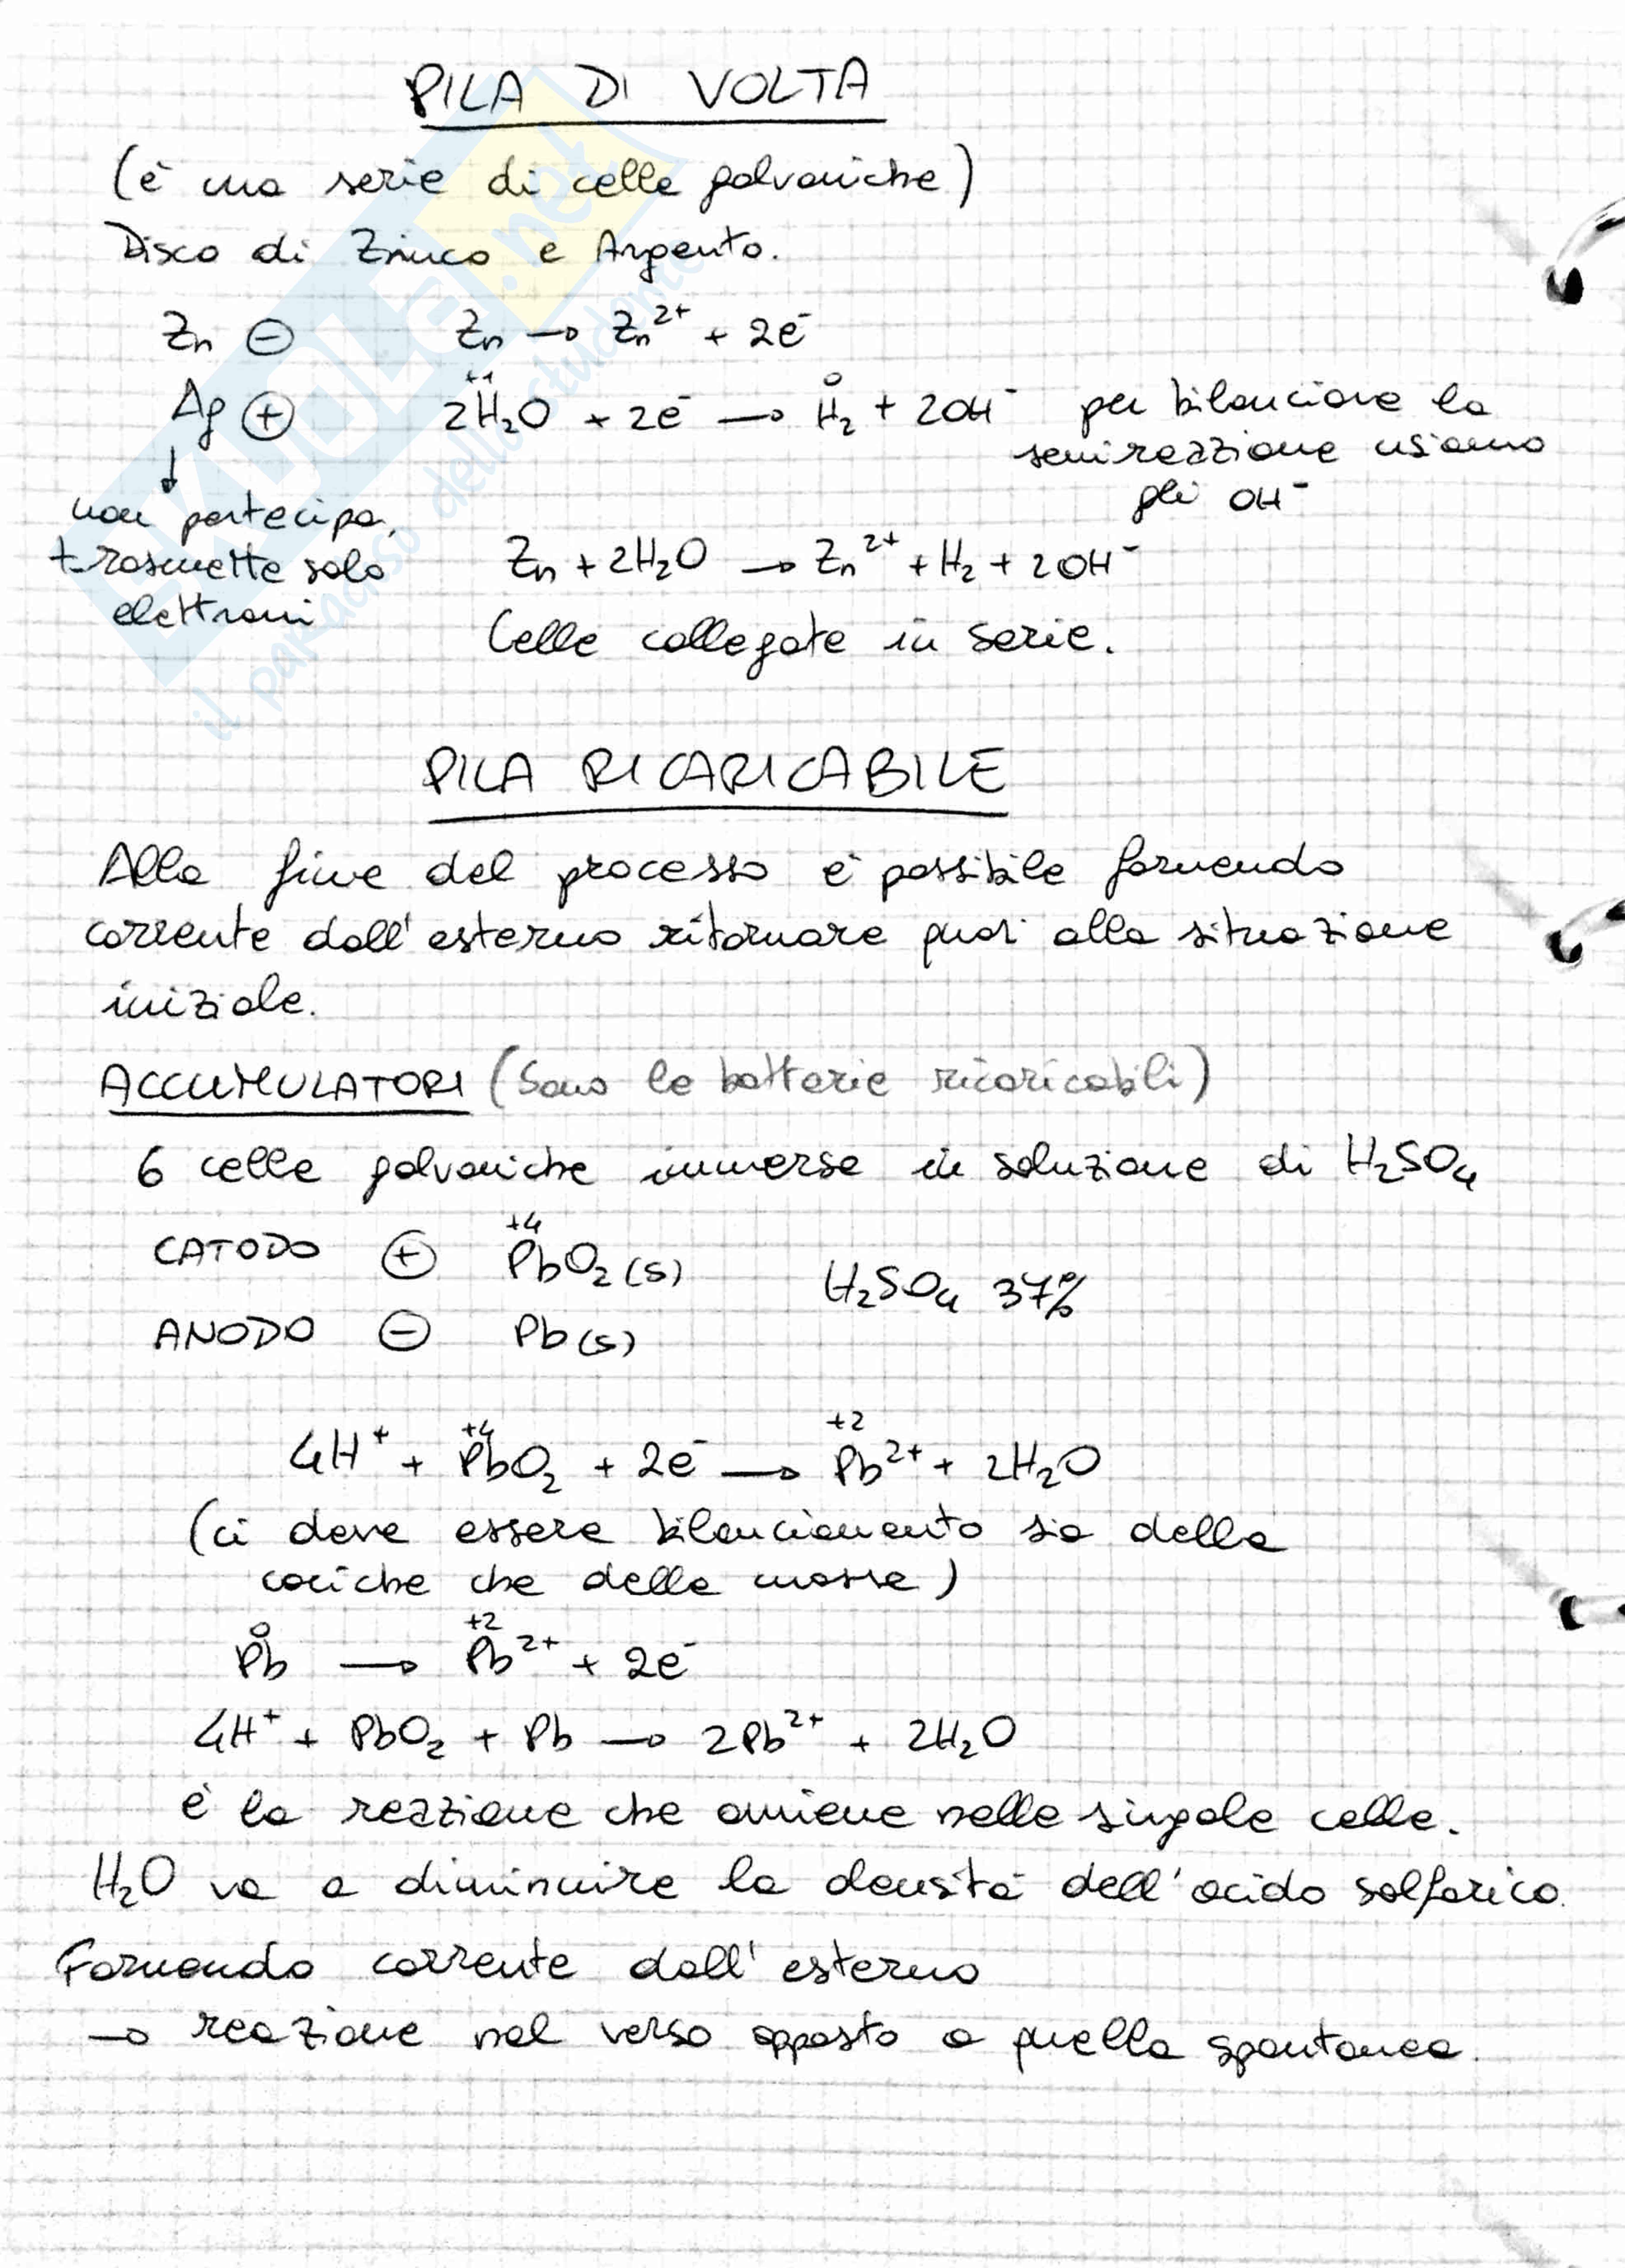 PILA DI VOLTA
(è una serie di celle galvaniche)
Disco di Zinco e Argento.
Zn ⊖ Zn → Zn²⁺ + 2e⁻
+1 0
Ag ⊕ 2H₂O + 2e⁻ → H₂ + 2OH⁻ per bilanciare la
semireazione usiamo
gli OH⁻
↓
non partecipa,
trasmette solo
elettroni
Zn + 2H₂O → Zn²⁺ + H₂ + 2OH⁻
Celle collegate in serie.
PILA RICARICABILE
Alla fine del processo è possibile fornendo
corrente dall'esterno ritornare quasi alla situazione
iniziale.
ACCUMULATORI (Sono le batterie ricaricabili)
6 celle galvaniche immerse in soluzione di H₂SO₄
+4
CATODO ⊕ PbO₂(s)
H₂SO₄ 37%
ANODO ⊖ Pb(s)
+4 +2
4H⁺ + PbO₂ + 2e⁻ → Pb²⁺ + 2H₂O
(ci deve essere bilanciamento sia delle
cariche che delle masse)
0 +2
Pb → Pb²⁺ + 2e⁻
4H⁺ + PbO₂ + Pb → 2Pb²⁺ + 2H₂O
è la reazione che avviene nelle singole celle.
H₂O va a diminuire la densità dell'acido solforico.
Fornendo corrente dall'esterno
→ reazione nel verso opposto a quella spontanea.
il paradiso dello studente